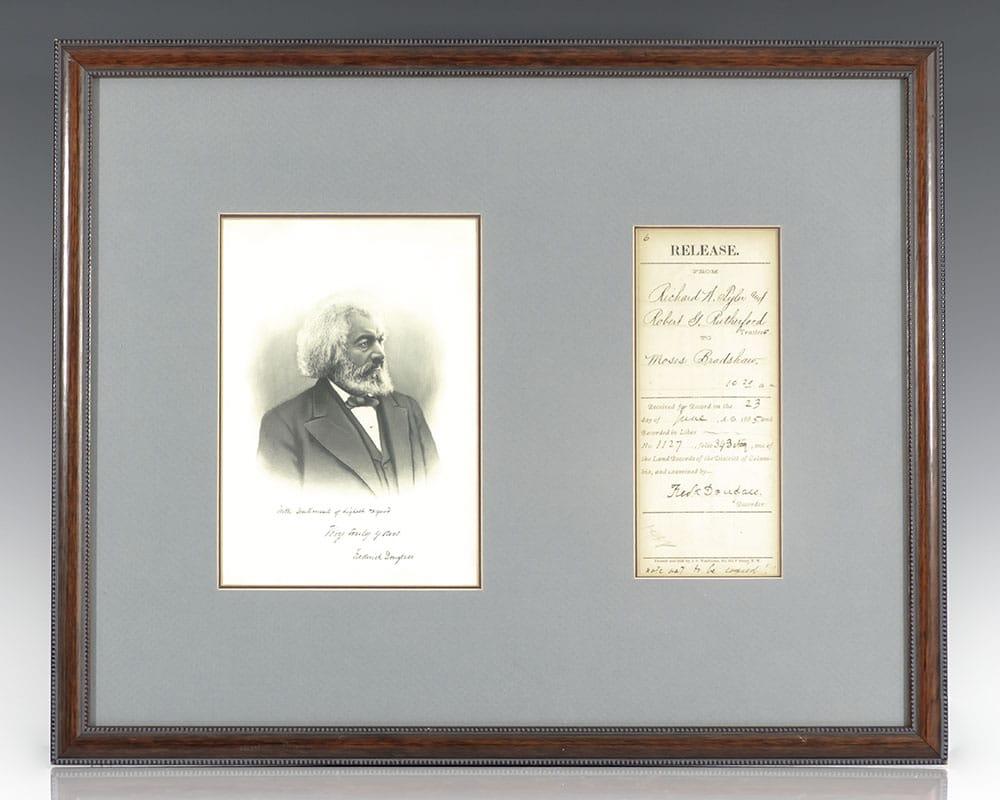 With Sentiment of highest regard
Very truly yours
Frederick Douglass
6
RELEASE.
FROM
Richard A.
Robert G. Rutherford
Trustees
TO
Moses Bradshaw.
Received for Record on the 23
day of June , A.D. 188 5 and
Recorded in Liber
No 1127 , folio 393 , one of
the Land Records of the District of Colum-
bia, and examined by—
Fredk Douglass.
Recorder.
note not to be copied